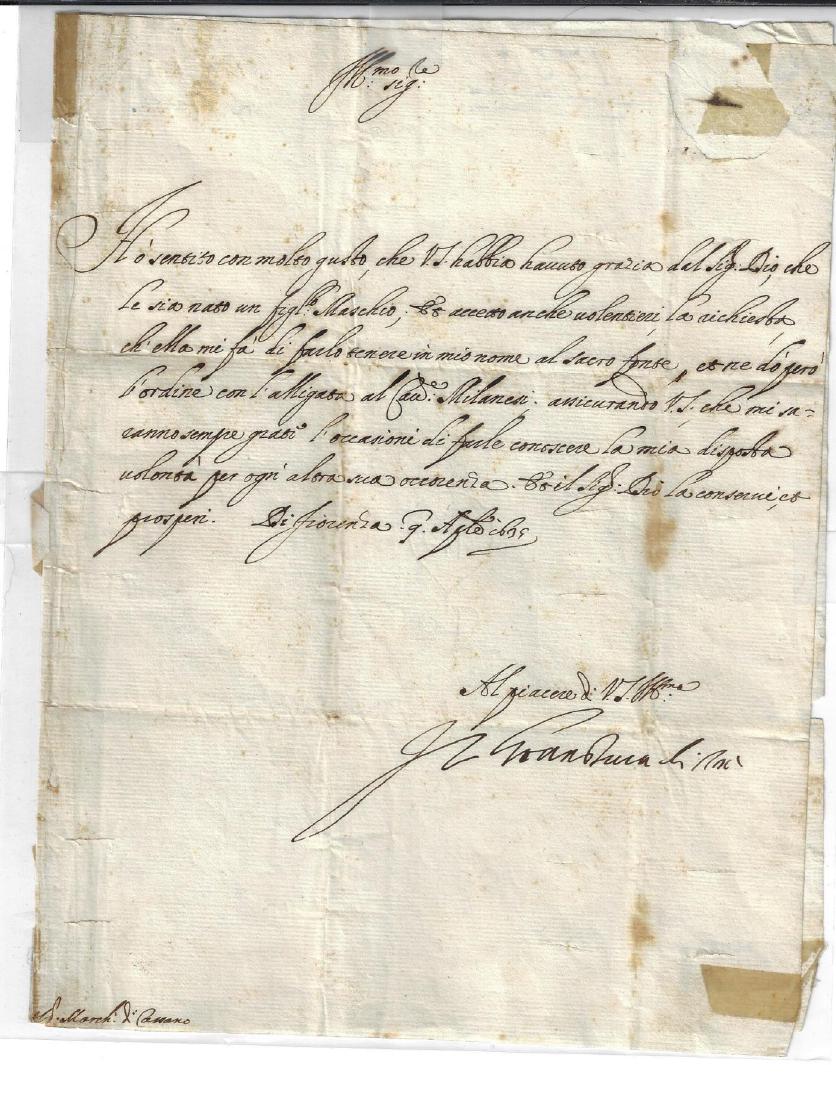 Ill.mo Sig.re
Hò sentito con molto gusto, che V.S. habbia havuto grazia dal Sig.r Dio, che
le sia nato un figl.lo Maschio, et accetto anche volentieri la richiesta
ch'ella mi fà di farlo tenere in mio nome al sacro fonte, et ne dò però
l'ordine con l'alligata al Cav.re Milanesi. assicurando V.S. che mi sa-
ranno sempre grati l'occasioni di farle conoscere la mia disposta
volontà per ogni altra sua occorenza. Et il Sig.r Dio la conservi, et
prosperi. Di fiorenza 9.
Al piacere di V.S. Ill.ma
Il Granduca di
March. di Cassano